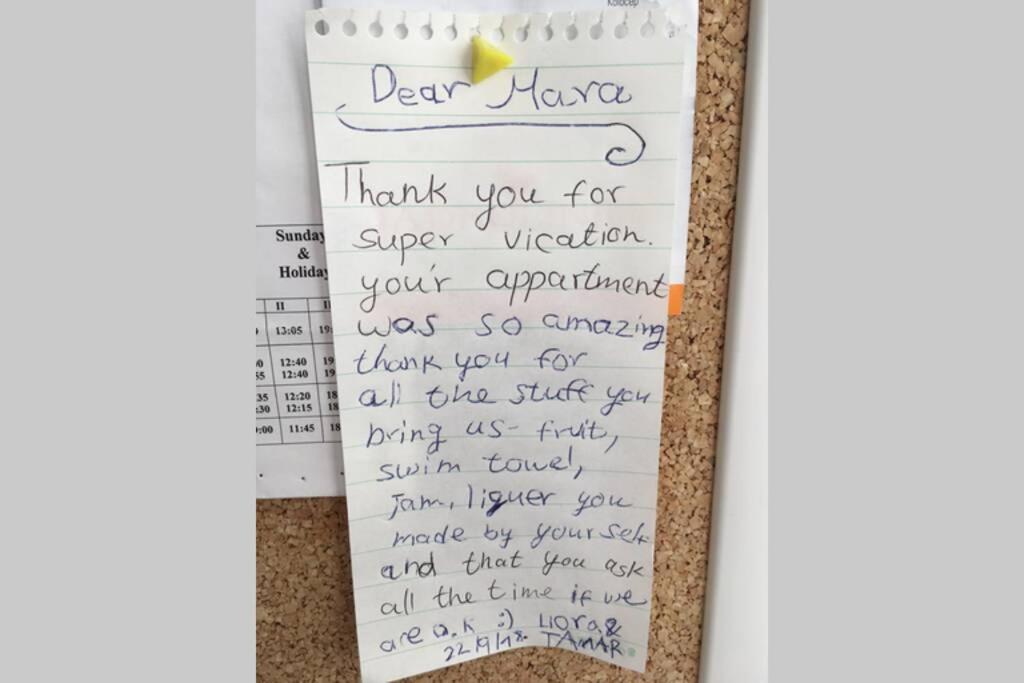 Kolocep
Dear Mara
Thank you for
super vication.
you'r appartment
was so amazing
thank you for
all the stuff you
bring us- fruit,
swim towel,
jam, liquer you
made by your self
and that you ask
all the time if we
are o.k :) Liora &
22/9/18. TAMAR.
Sunday
&
Holiday
II
13:05 19:
12:40 19
55 12:40 19
35 12:20 18
:30 12:15 18
:00 11:45 18